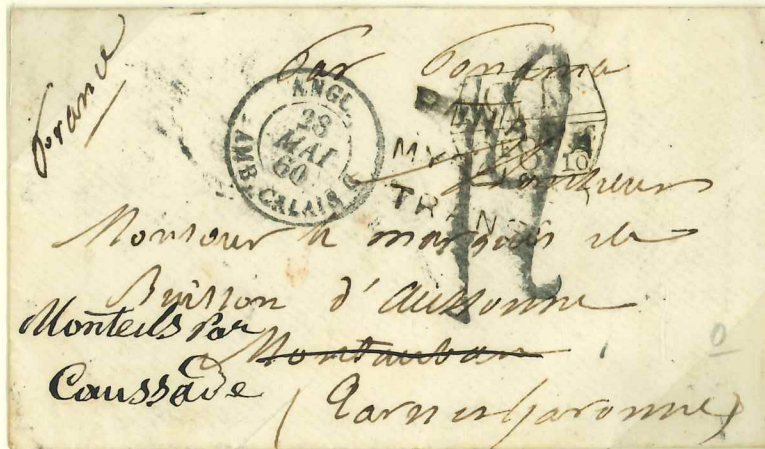 France
Par Panama
ANGL.
28
MAI
60
AMB. CALAIS
PANAMA
MY
TRANSIT
Monsieur
Monsieur le marquis de
Buisson d'Aussonne
Monteils Par
Montauban
Caussade
(Tarn et Garonne)